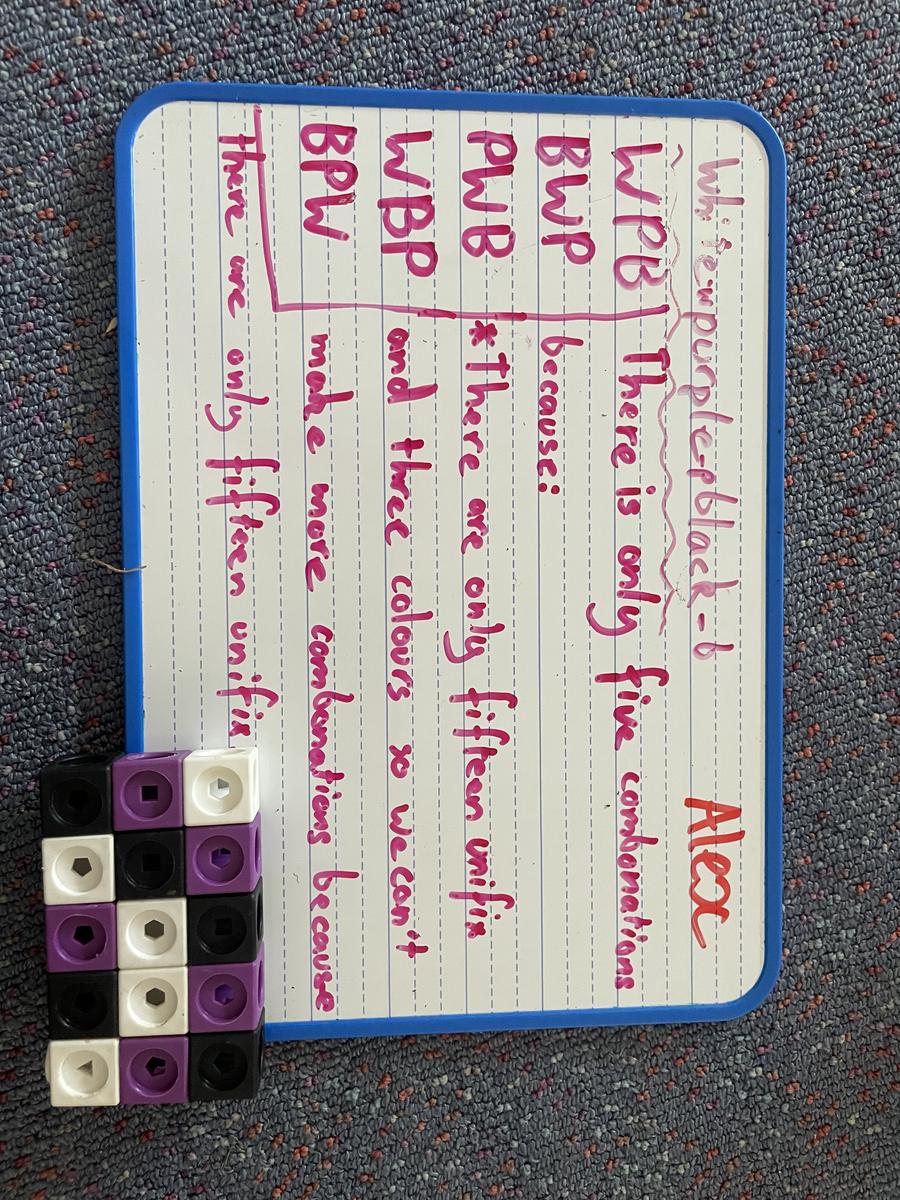 Alex
White-w purple-p black-b
WPB
BWP
PWB
WBP
BPW
There is only five combonations
because:
*There are only fifteen unifix
and three colours so we can't
make more combonations because
there are only fifteen unifix